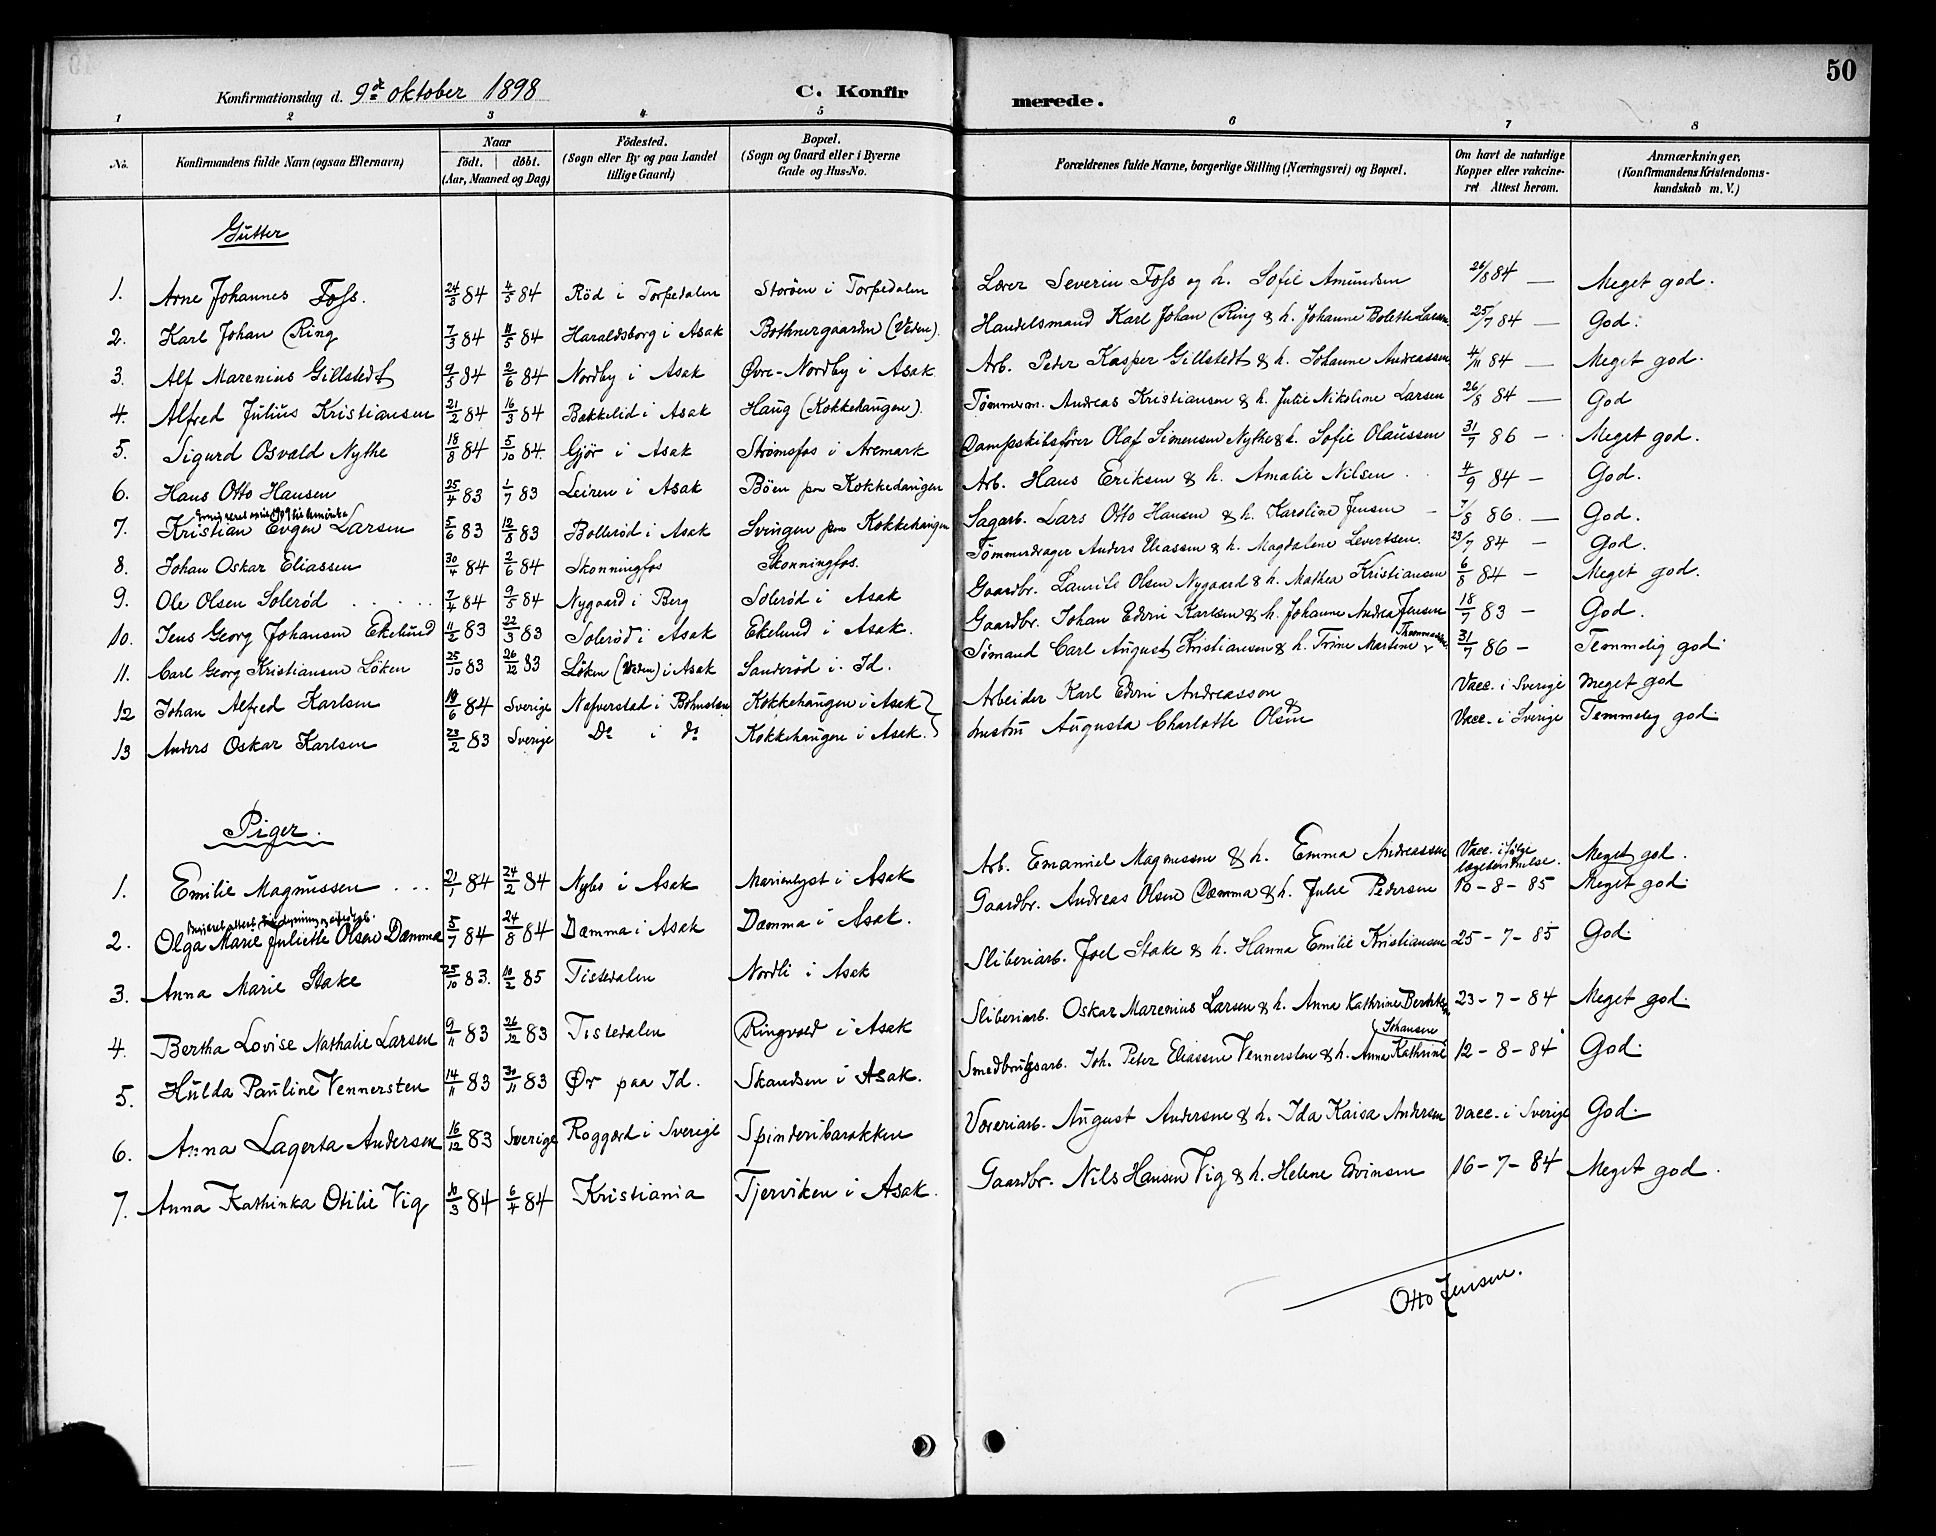 50
Konfirmationsdag d. 9de oktober 1898 C. Konfirmerede.
1 2 3 4 5 6 7 8
No. Konfirmandens fulde Navn (ogsaa Efternavn) Naar födt. döbt. (Aar, Maaned og Dag) Födested. (Sogn eller By og paa Landet tillige Gaard) Bopæl. (Sogn og Gaard eller i Byerne Gade og Hus-No. Forældrenes fulde Navne, borgerlige Stilling (Næringsvei) og Bopæl. Om havt de naturlige Kopper eller vakcineret Attest herom. Anmærkninger. (Konfirmandens Kristendomskundskab m. V.)
Gutter
1. Arne Johannes Foss. 24/3 84 4/5 84 Röd i Torpedalen Storöen i Torpedalen Lærer Severin Foss og h. Sofie Amundsen 26/8 84 — Meget god.
2. Karl Johan Ring 7/3 84 11/5 84 Haraldsborg i Asak Bothnergaarden (Veden). Handelsmand Karl Johan Ring & h. Johanne Bolette Larsen 25/7 84 — God.
3. Alf Marenius Gillstedt 9/5 84 2/6 84 Nordby i Asak Øvre-Nordby i Asak Arb. Peter Kasper Gillstedt & h. Johanne Andreassen 4/11 84 — Meget god.
4. Alfred Julius Kristiansen 21/2 84 16/3 84 Bakkelid i Asak Haug (Kokkehaugen). Tømmerm. Andreas Kristiansen & h. Julie Nikoline Larsen 26/8 84 — God
5. Sigurd Osvald Nythe 18/8 84 5/10 84. Gjør i Asak Strømsfos i Aremark Dampskibsfører Olaf Simensen Nythe & h. Sofie Olaussen 31/7 86 — Meget god.
6. Hans Otto Hansen 25/4 83 1/7 83 Leiren i Asak Böen paa Kokkehaugen Arb. Hans Eriksen & h. Amalie Nilsen 4/9 84 — God.
7. Kristian Evgen Larsen 5/6 83 12/8 83 Bollerød i Asak Svingen paa Kokkehaugen Sagarb. Lars Otto Hansen & h. Karoline Jensen 7/8 86. — God.
8. Johan Oskar Eliassen 30/4 84 2/6 84 Skonningfos Skonningfos. Tømmerdrager Anders Eliassen & h. Magdalene Levertsen. 23/7 84 — God.
9. Ole Olsen Solerød 7/4 84 9/5 84 Nygaard i Berg Solerød i Asak Gaardbr. Laurits Olsen Nygaard & h. Mathea Kristiansen 6/8 84 — Meget god.
10. Jens Georg Johansen Ekelund 11/2 83 22/3 83 Solerød i Asak Ekelund i Asak. Gaardbr. Johan Edvin Karlsen & h. Johanne Andrea Jensen 18/7 83 — God.
11. Carl Georg Kristiansen Löken 25/10 83 26/12 83 Löken (Veden) i Asak Sanderød i Id. Sømand Carl August Kristiansen & h. Trine Martine 31/7 86 — Temmelig god.
12 Johan Alfred Karlsen 10/6 84 Sverige Nefverstad i Bohuslen Kokkehaugen i Asak Arbeider Karl Edvin Andreasson & Vacc. i Sverige Meget god
13 Anders Oskar Karlsen 23/2 83 Sverige Do i do Kokkehaugen i Asak. hustru Augusta Charlotte Olsen Vacc. i Sverige Temmelig god.
Piger.
1. Emilie Magnussen 21/1 84 24/2 84 Nybo i Asak Marienlyst i Asak Arb. Emanuel Magnussen & h. Emma Andreassen Vacc. ifølge Meget god.
2. Olga Marie Juliette Olsen Dæmma 5/7 84 24/8 84 Dæmma i Asak Dæmma i Asak. Gaardbr. Andreas Olsen Dæmma & h. Julie Pedersen 10-8-85 Meget god.
3. Anna Marie Stake 25/10 83. 10/2 85 Tistedalen Nordli i Asak Sliberiarb. Joel Stake & h. Hanna Emilie Kristiansen 25-7-85 God.
4. Bertha Lovise Nathalie Larsen 9/11 83 26/12 83 Tistedalen Ringvold i Asak Sliberiarb. Oskar Marenius Larsen & h. Anna Kathrine 23-7-84 Meget god.
5. Hulda Pauline Vennersten 14/11 83 30/11 83 Ør paa Id. Skandsen i Asak. Smedbrugsarb. Joh. Peter Eliassen Vennersten & h. Anna Kathrine Johansen 12-8-84 God.
6. Anna Lagerta Andersen 16/12 83 Sverige Roggærd i Sverige Spinderibarakken Væveriarb. August Andersen & h. Ida Kaisa Andersen Vacc. i Sverige God.
7. Anna Kathinka Otilie Vig 10/3 84 6/4 84 Kristiania Tjerviken i Asak. Gaardbr. Nils Hansen Vig & h. Helene Edvinsen 16-7-84 Meget god.
Otto Jensen.